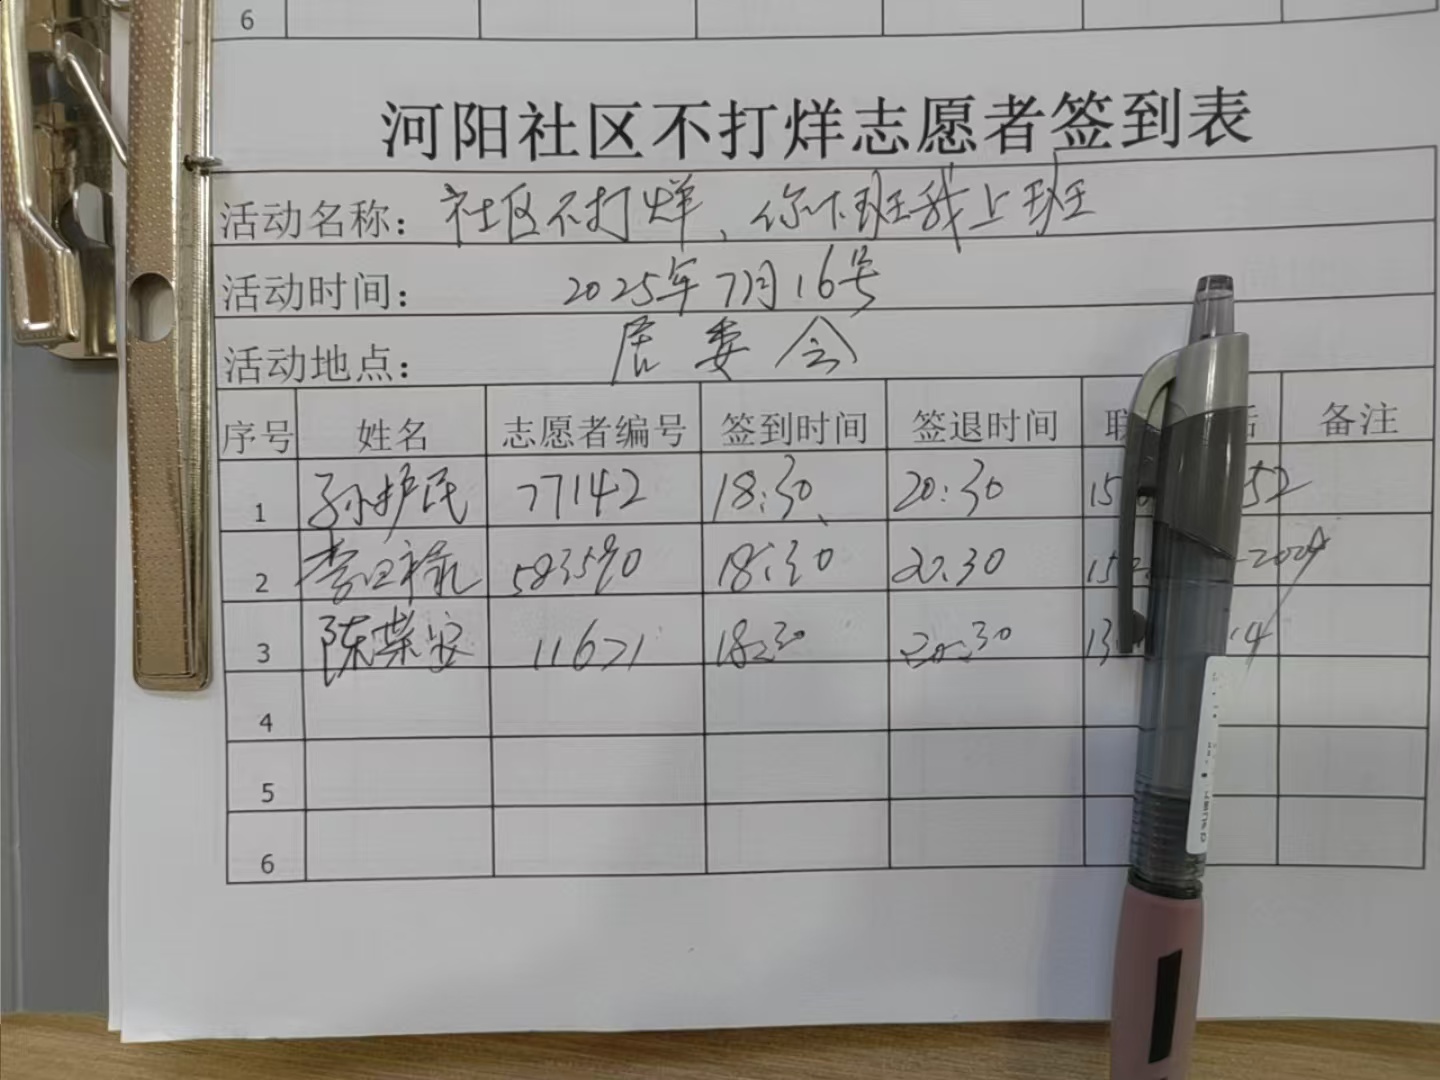 6
河阳社区不打烊志愿者签到表
活动名称：社区不打烊、你下班我上班
活动时间：2025年7月16号
活动地点：居委会
序号 姓名 志愿者编号 签到时间 签退时间 联 话 备注
1 孙护民 77142 18:30、 20:30 15 52
2 李卫禄 583590 18:30 20:30 15 -2009
3 陈荣安 11671 18:30 20:30 13 14
4
5
6